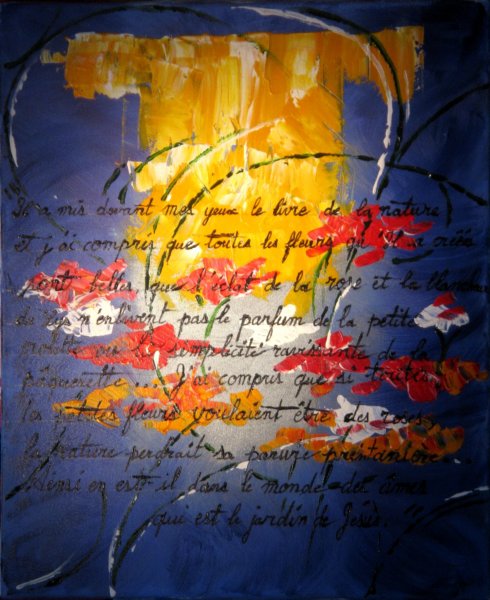 "Il a mis devant mes yeux le livre de la nature
Et j'ai compris que toutes les fleurs qu'Il a créées
sont belles, que l'éclat de la rose et la blancheur
du lys n'enlèvent pas le parfum de la petite
violette ou la simplicité ravissante de la
pâquerette... J'ai compris que si toutes
les petites fleurs voulaient être des roses,
la nature perdrait sa parure printanière...
Ainsi en est-il dans le monde des âmes
qui est le jardin de Jésus."